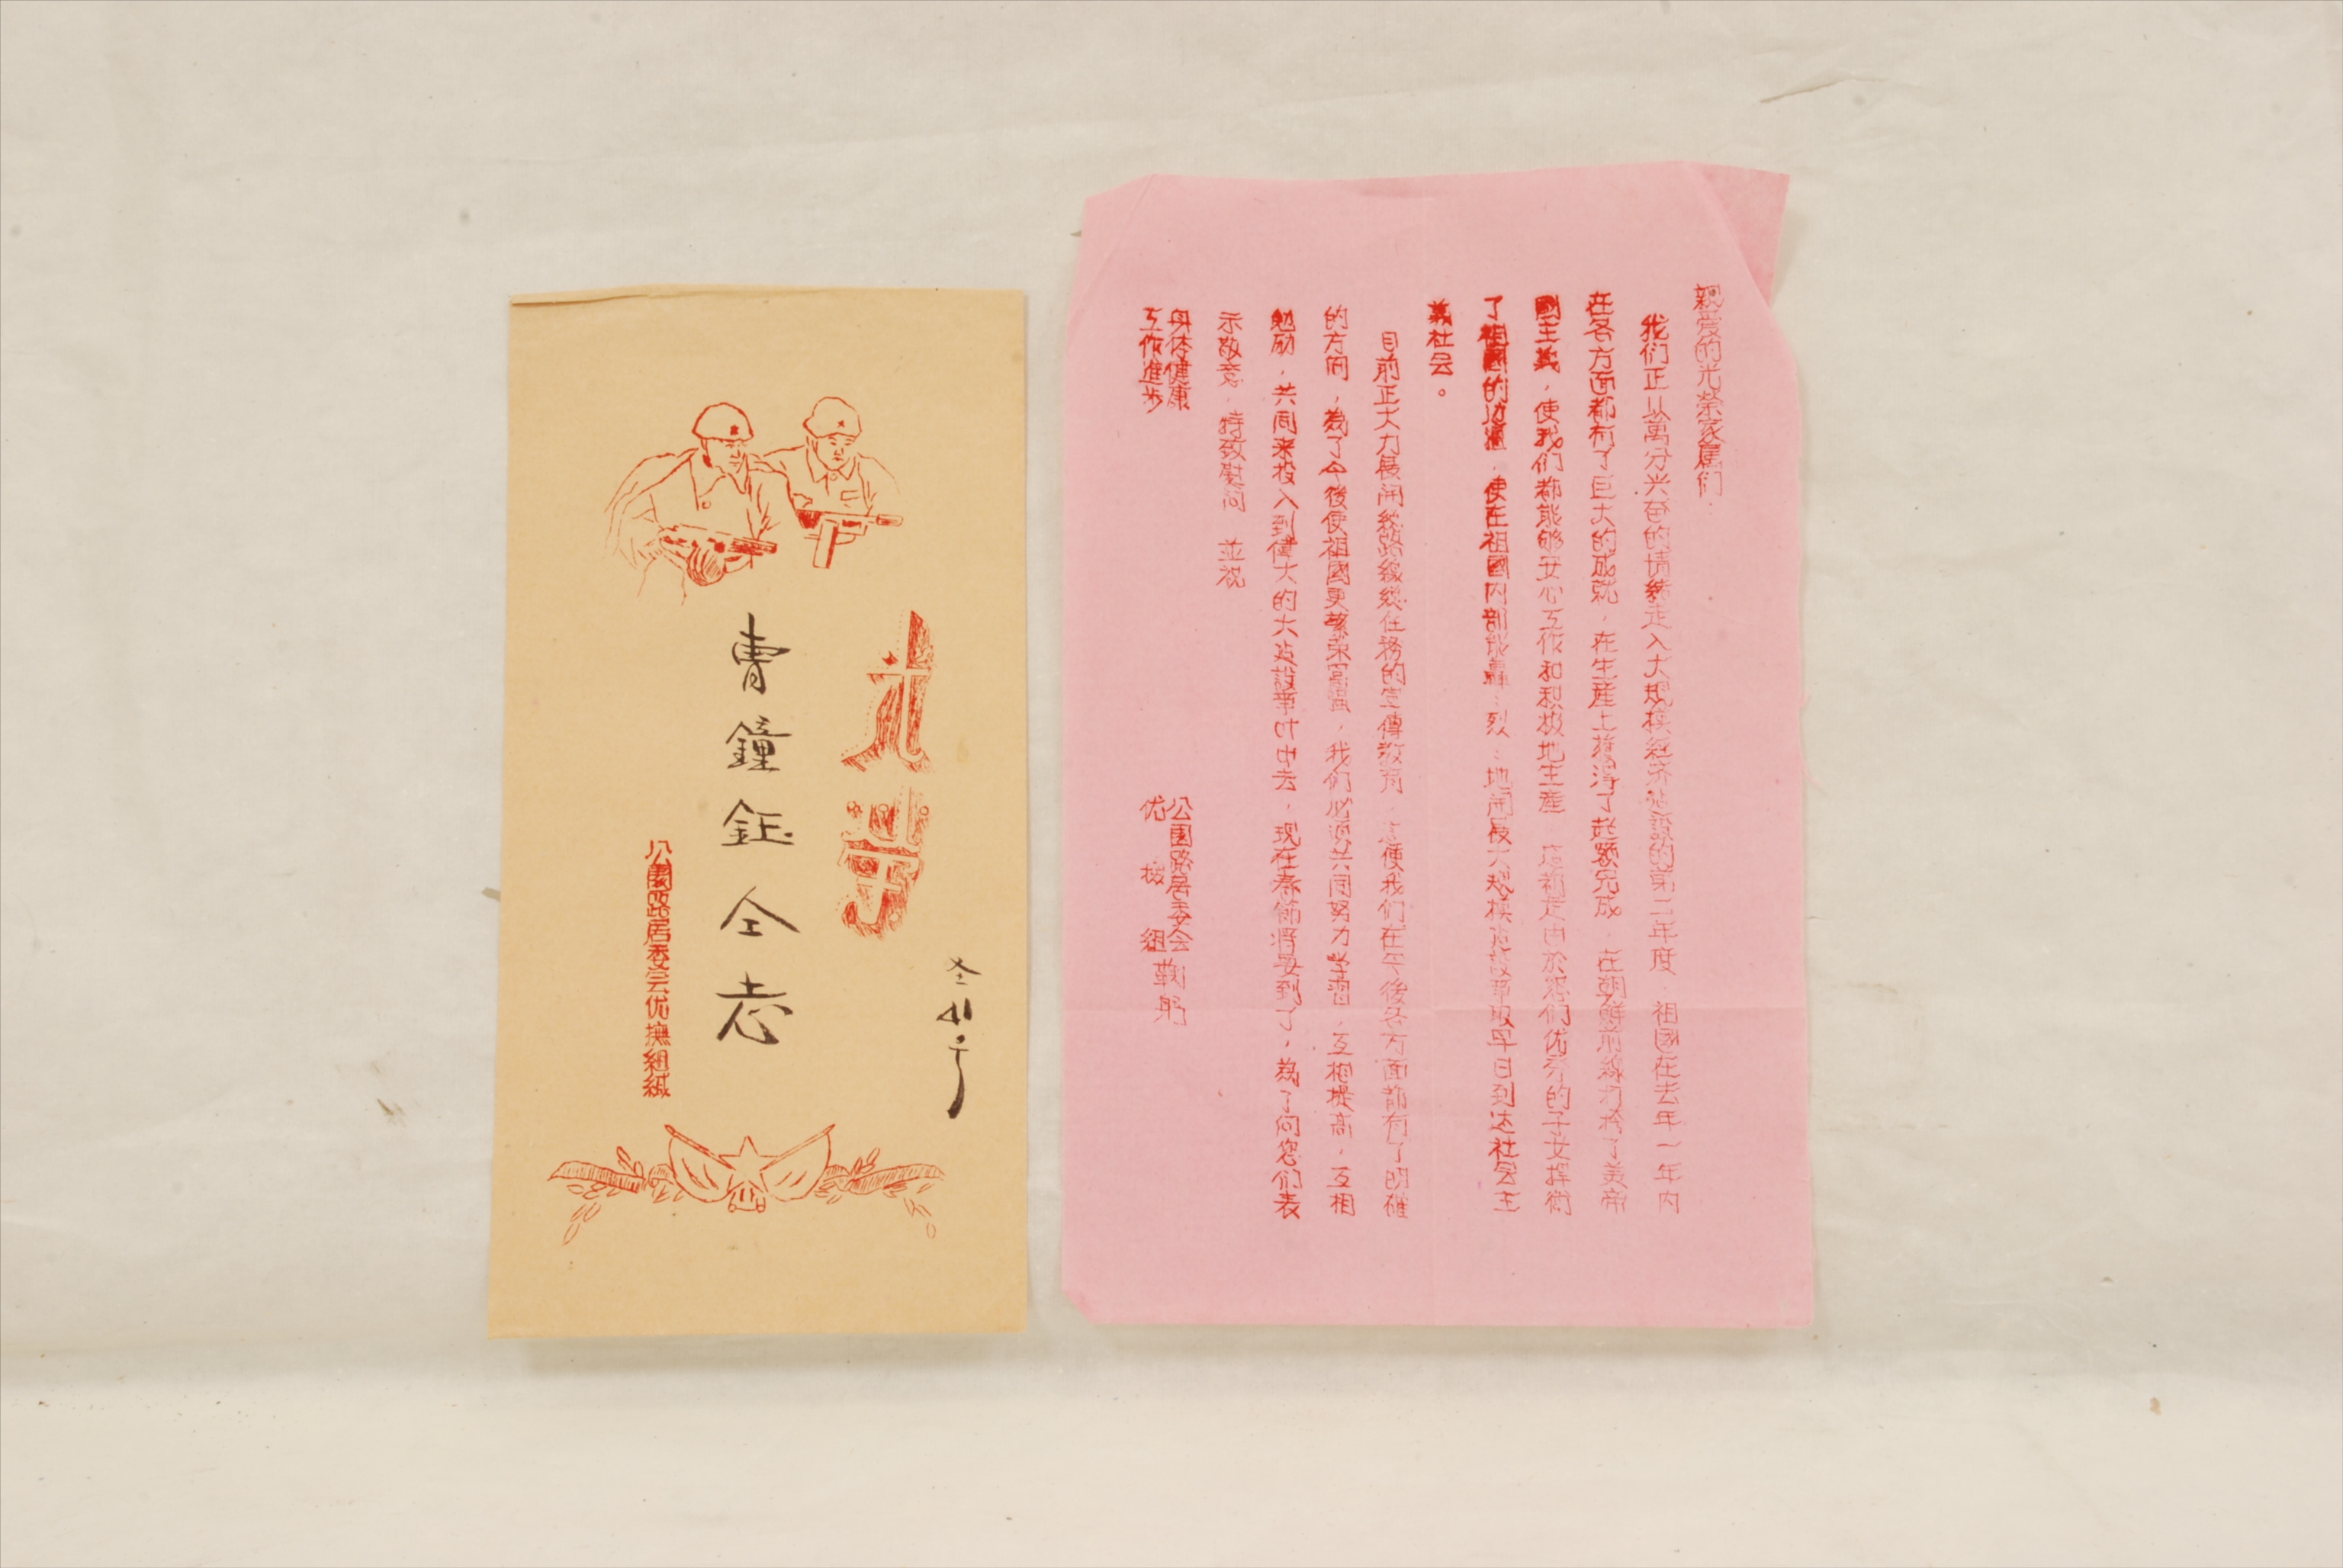 光荣
曹鐘鈺仝志
公園路居委会优撫組緘
親爱的光榮家属们:
我们正以萬分兴奋的情緒走入大規模經济建設的第二年度,祖國在去年一年内
在各方面都有了巨大的成就,在生産上獲淂了超額完成,在朝鮮前線打垮了美帝
國主義,使我们都能够安心工作和积极地生産,這都是由於您们优秀的子女捍衛
了祖國的边疆,使在祖國内部能轟:烈:地開展大規模建設争取早日到达社会主
義社会。
目前正大力展開總路線總任務的宣傳教育,這使我们在今後各方面都有了明確
的方向,為了今後使祖國更繁荣富强,我们必須共同努力学習,互相提高,互相
勉励,共同来投入到偉大的大建設事业中去,现在春節将要到了,為了向您们表
示敬意,特致慰问 並祝
身体健康
工作進步
公園路居委会
优撫組
鞠躬